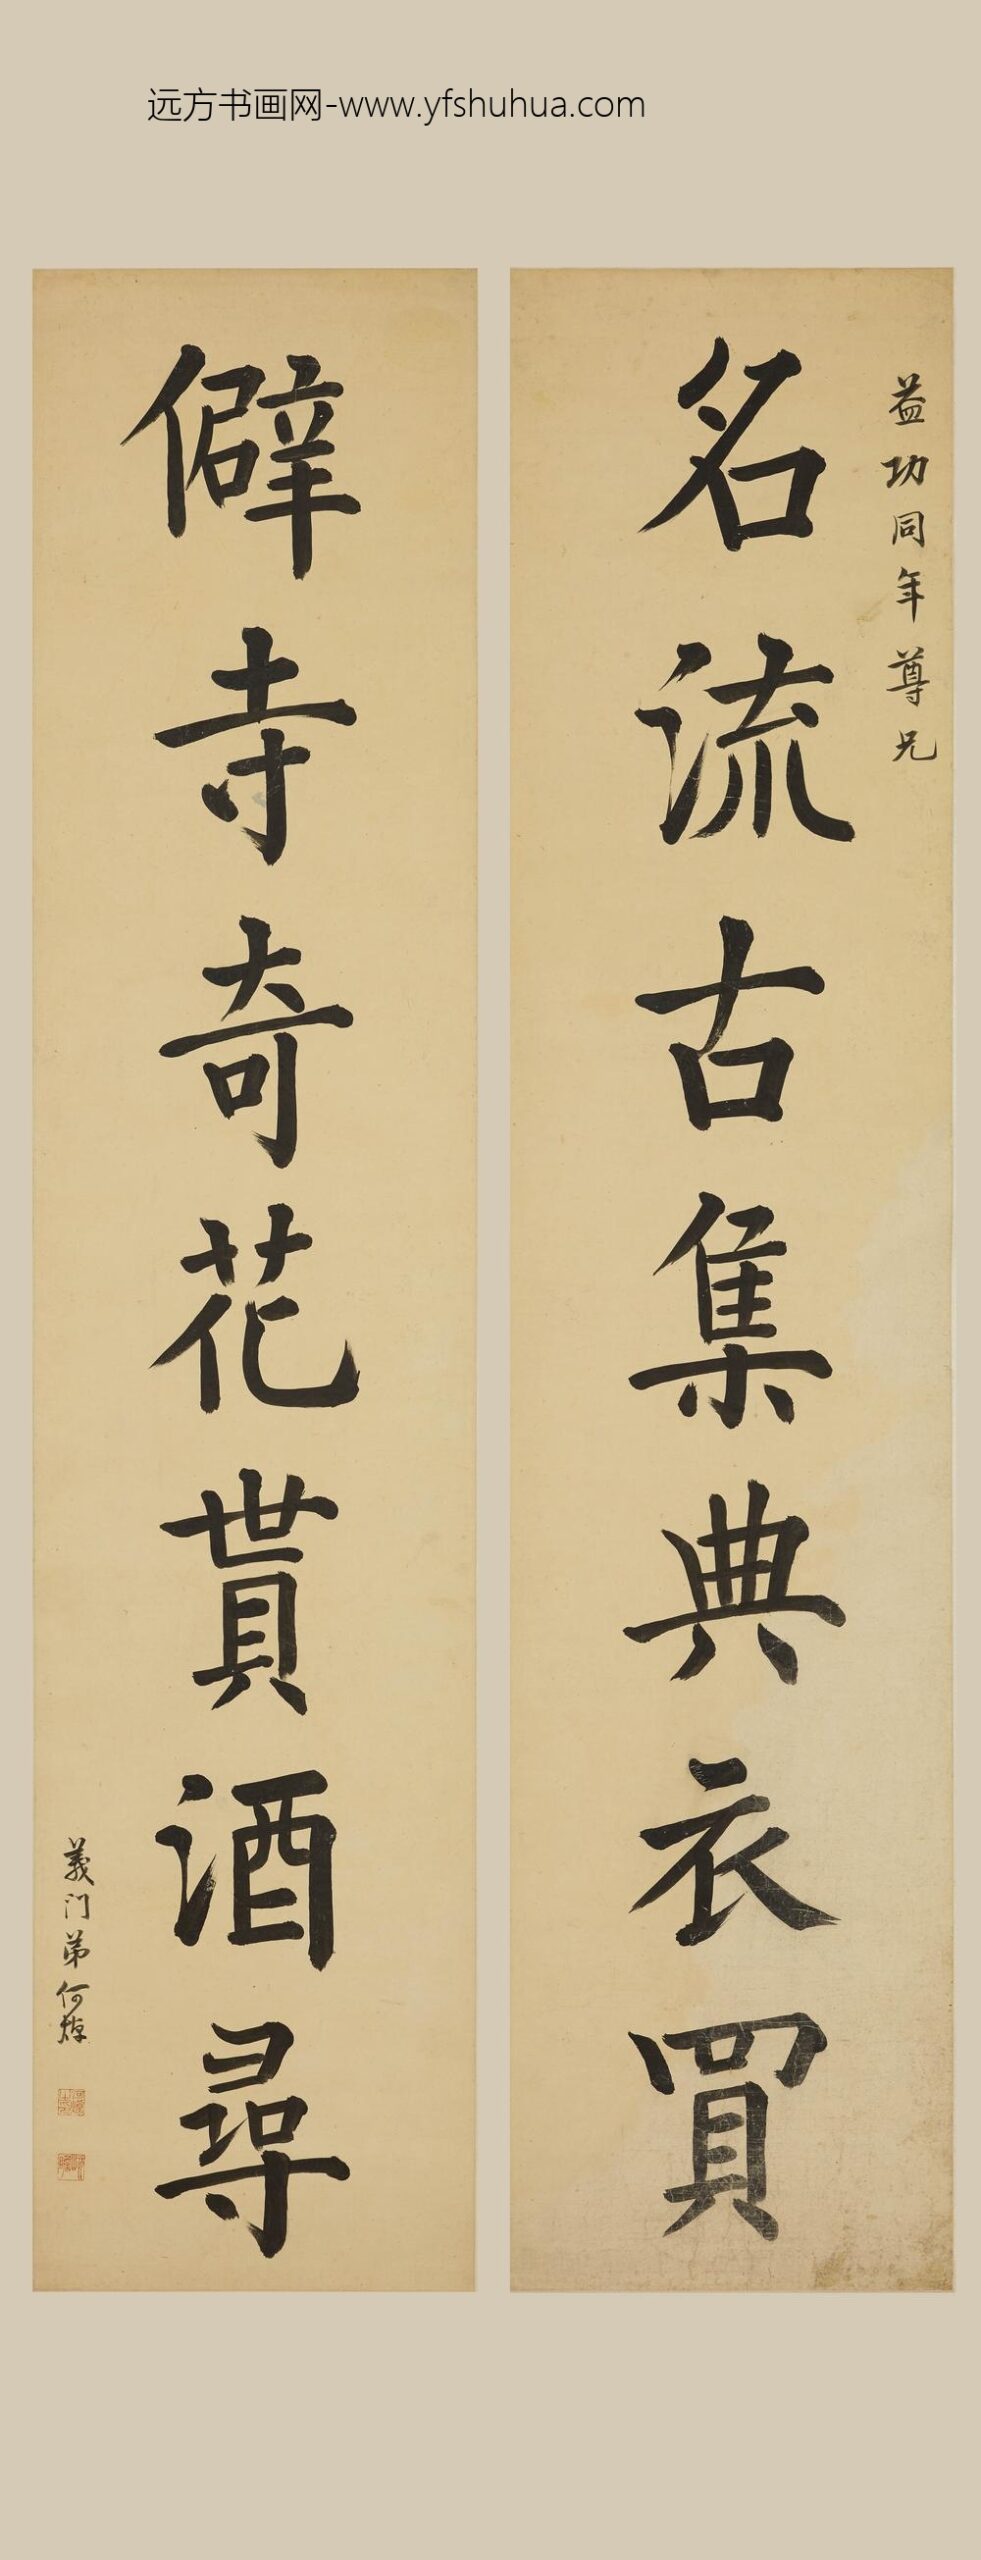 远方书画网-www.yfshuhua.com
益功同年尊兄
名流古集典衣買
僻寺奇花貰酒尋
義门弟何焯